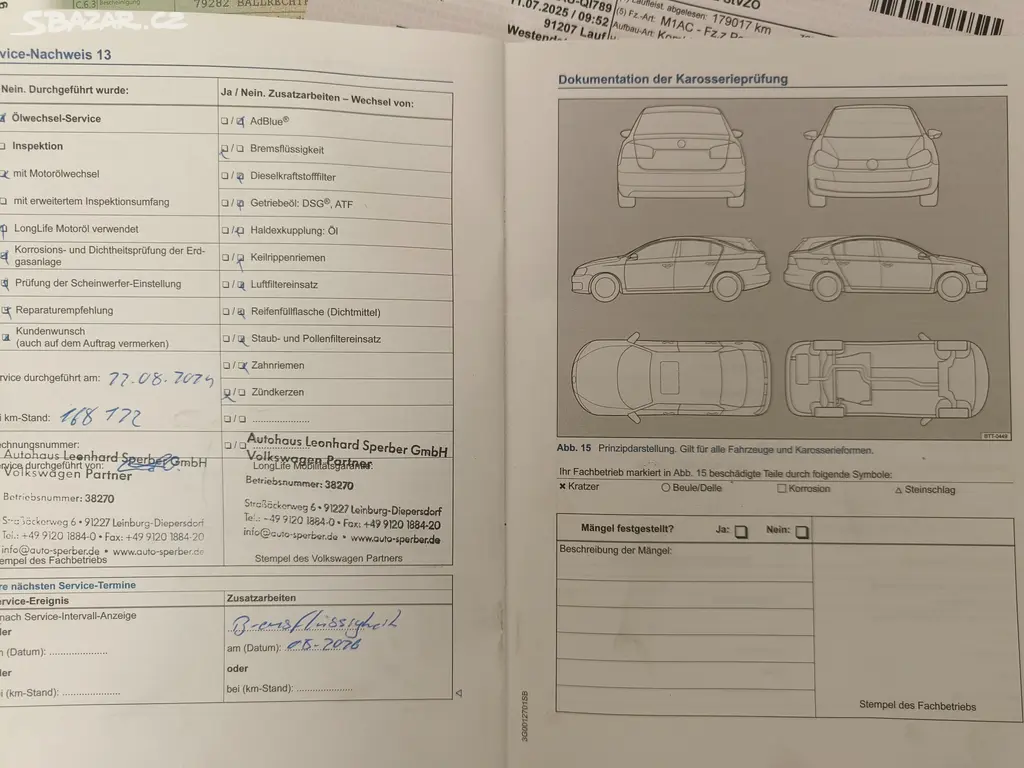 SBAZAR.CZ
C.6.3 Bescheinigung
79282 BALLRECHT
-QI789
Laufleist. abgelesen: 179017 km
11.07.2025 / 09:52
(5) Fz.-Art: M1AC - Fz.z
91207 Lauf
Aufbau-Art:
vice-Nachweis 13
Nein. Durchgeführt wurde:
Ja / Nein. Zusatzarbeiten – Wechsel von:
Ölwechsel-Service
AdBlue®
Inspektion
Bremsflüssigkeit
mit Motorölwechsel
Dieselkraftstofffilter
mit erweitertem Inspektionsumfang
Getriebeöl: DSG®, ATF
LongLife Motoröl verwendet
Haldexkupplung: Öl
Korrosions- und Dichtheitsprüfung der Erd-
gasanlage
Keilrippenriemen
Prüfung der Scheinwerfer-Einstellung
Luftfiltereinsatz
Reparaturempfehlung
Reifenfüllflasche (Dichtmittel)
Kundenwunsch
(auch auf dem Auftrag vermerken)
Staub- und Pollenfiltereinsatz
Zahnriemen
rvice durchgeführt am: 22.08.2024
Zündkerzen
i km-Stand: 168 172
chnungsnummer:
Autohaus Leonhard Sperber GmbH
rvice durchgeführt von:
Volkswagen Partner
Betriebsnummer: 38270
Straßäckerweg 6 • 91227 Leinburg-Diepersdorf
Tel.: +49 9120 1884-0 • Fax: +49 9120 1884-20
info@auto-sperber.de • www.auto-sperber.de
empel des Fachbetriebs
Autohaus Leonhard Sperber GmbH
Volkswagen Partner
LongLife Mobilitätsgarantie:
Betriebsnummer: 38270
Straßäckerweg 6 • 91227 Leinburg-Diepersdorf
Tel.: +49 9120 1884-0 • Fax: +49 9120 1884-20
info@auto-sperber.de • www.auto-sperber.de
Stempel des Volkswagen Partners
re nächsten Service-Termine
rvice-Ereignis
Zusatzarbeiten
nach Service-Intervall-Anzeige
Bremsflüssigkeit
der
n (Datum): ....................
am (Datum): 08-2026
der
oder
i (km-Stand): ....................
bei (km-Stand): ....................
Dokumentation der Karosserieprüfung
BTT-0449
Abb. 15 Prinzipdarstellung. Gilt für alle Fahrzeuge und Karosserieformen.
Ihr Fachbetrieb markiert in Abb. 15 beschädigte Teile durch folgende Symbole:
Kratzer
Beule/Delle
Korrosion
Steinschlag
Mängel festgestellt? Ja: Nein:
Beschreibung der Mängel:
Stempel des Fachbetriebs
3G0012701SB